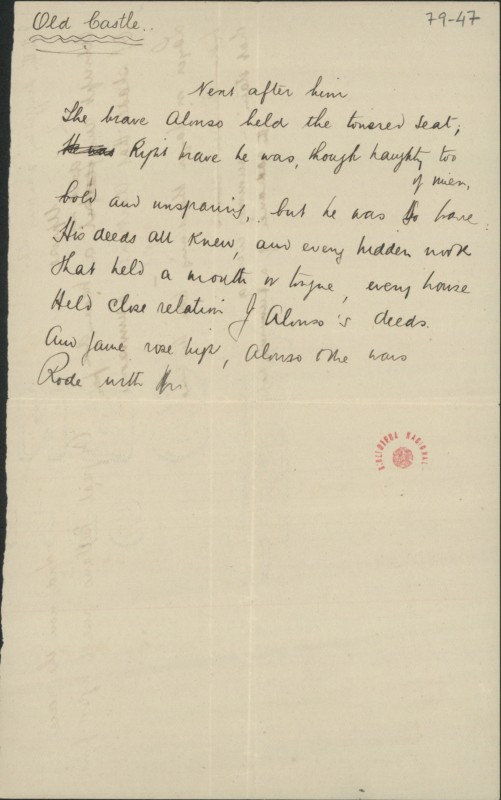 Old Castle..
79-47
Next after him
The brave Alonso held the towered seat;
He was Right brave he was, though haughty too
of mien,
bold and unsparing, but he was so brave
His deeds all knew, and every hidden nook
That held a mouth or tongue, every house
Held close relation of Alonso's deeds.
And fame rose high, Alonso to the wars
Rode with
BIBLIOTECA NACIONAL